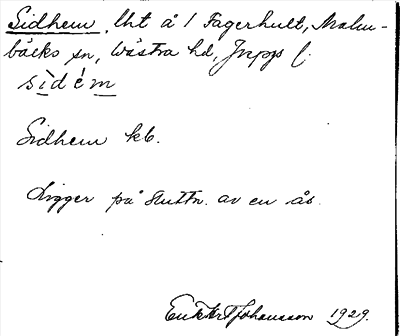 Sidhem, lht å 1 Fagerhult, Malm-
bäcks sn, Västra hd, Jnpgs l.
sìdém
Sidhem kb.
Ligger på sluttn. av en ås.
Johansson 1929.